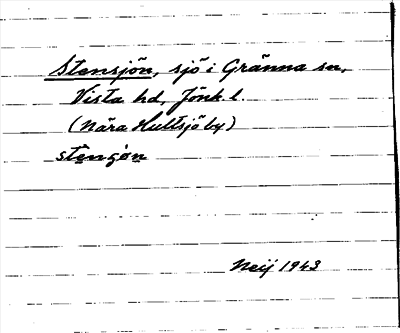 Stensjön, sjö i Gränna sn,
Vista hd, Jönk l.
(Nära Hultsjö by)
stengön
Neij 1943